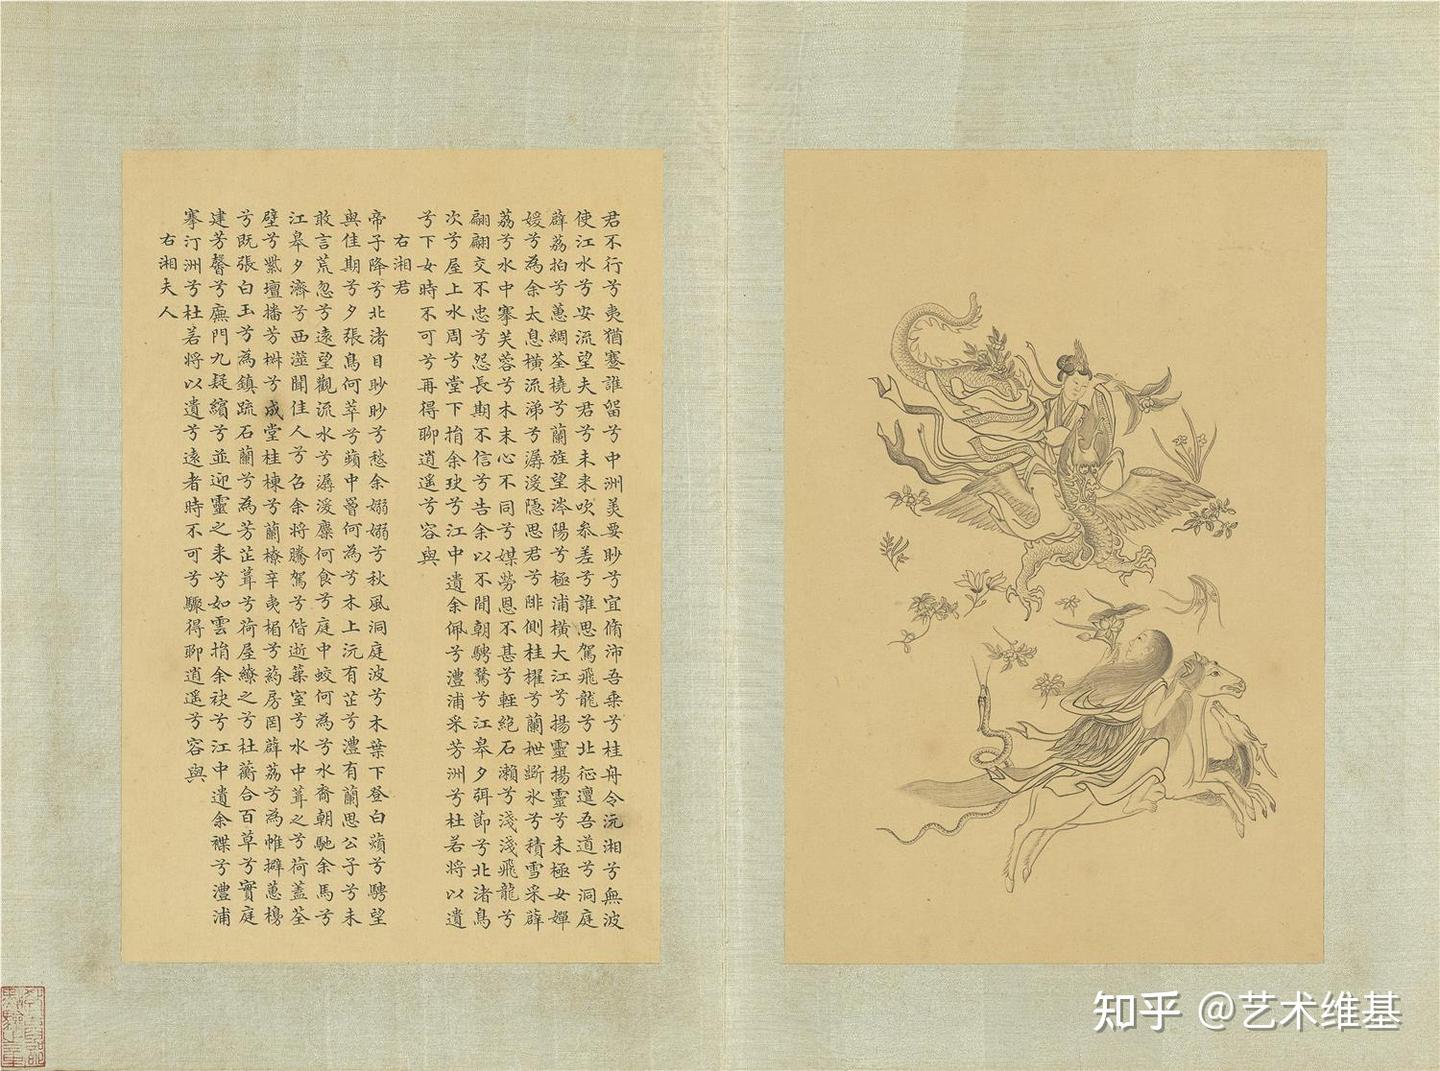 君不行兮夷猶蹇誰留兮中洲美要眇兮宜脩沛吾乘兮桂舟令沅湘兮無波
使江水兮安流望夫君兮未来吹參差兮誰思駕飛龍兮北征邅吾道兮洞庭
薜荔拍兮蕙綢荃橈兮蘭旌望涔陽兮極浦橫大江兮揚靈揚靈兮未極女嬋
媛兮為余太息橫流涕兮潺湲隱思君兮陫側桂櫂兮蘭枻斲氷兮積雪采薜
荔兮水中搴芙蓉兮木末心不同兮媒勞恩不甚兮輕絶石瀨兮淺淺飛龍兮
翩翩交不忠兮怨長期不信兮告余以不閒朝騁騖兮江皋夕弭節兮北渚鳥
次兮屋上水周兮堂下捐余玦兮江中遺余佩兮澧浦采芳洲兮杜若將以遺
兮下女時不可兮再得聊逍遥兮容與
右湘君
帝子降兮北渚目眇眇兮愁余嫋嫋兮秋風洞庭波兮木葉下登白薠兮騁望
與佳期兮夕張鳥何萃兮蘋中罾何為兮木上沅有芷兮澧有蘭思公子兮未
敢言荒忽兮遠望觀流水兮潺湲麋何食兮庭中蛟何為兮水裔朝馳余馬兮
江皋夕濟兮西澨聞佳人兮召余將騰駕兮偕逝築室兮水中葺之兮荷蓋荃
壁兮紫壇播芳椒兮成堂桂棟兮蘭橑辛夷楣兮葯房罔薜荔兮為帷擗蕙櫋
兮既張白玉兮為鎮疏石蘭兮為芳芷葺兮荷屋繚之兮杜蘅合百草兮實庭
建芳馨兮廡門九疑繽兮並迎靈之来兮如雲捐余袂兮江中遺余褋兮澧浦
搴汀洲兮杜若將以遺兮遠者時不可兮驟得聊逍遥兮容與
右湘夫人
知乎 @艺术维基